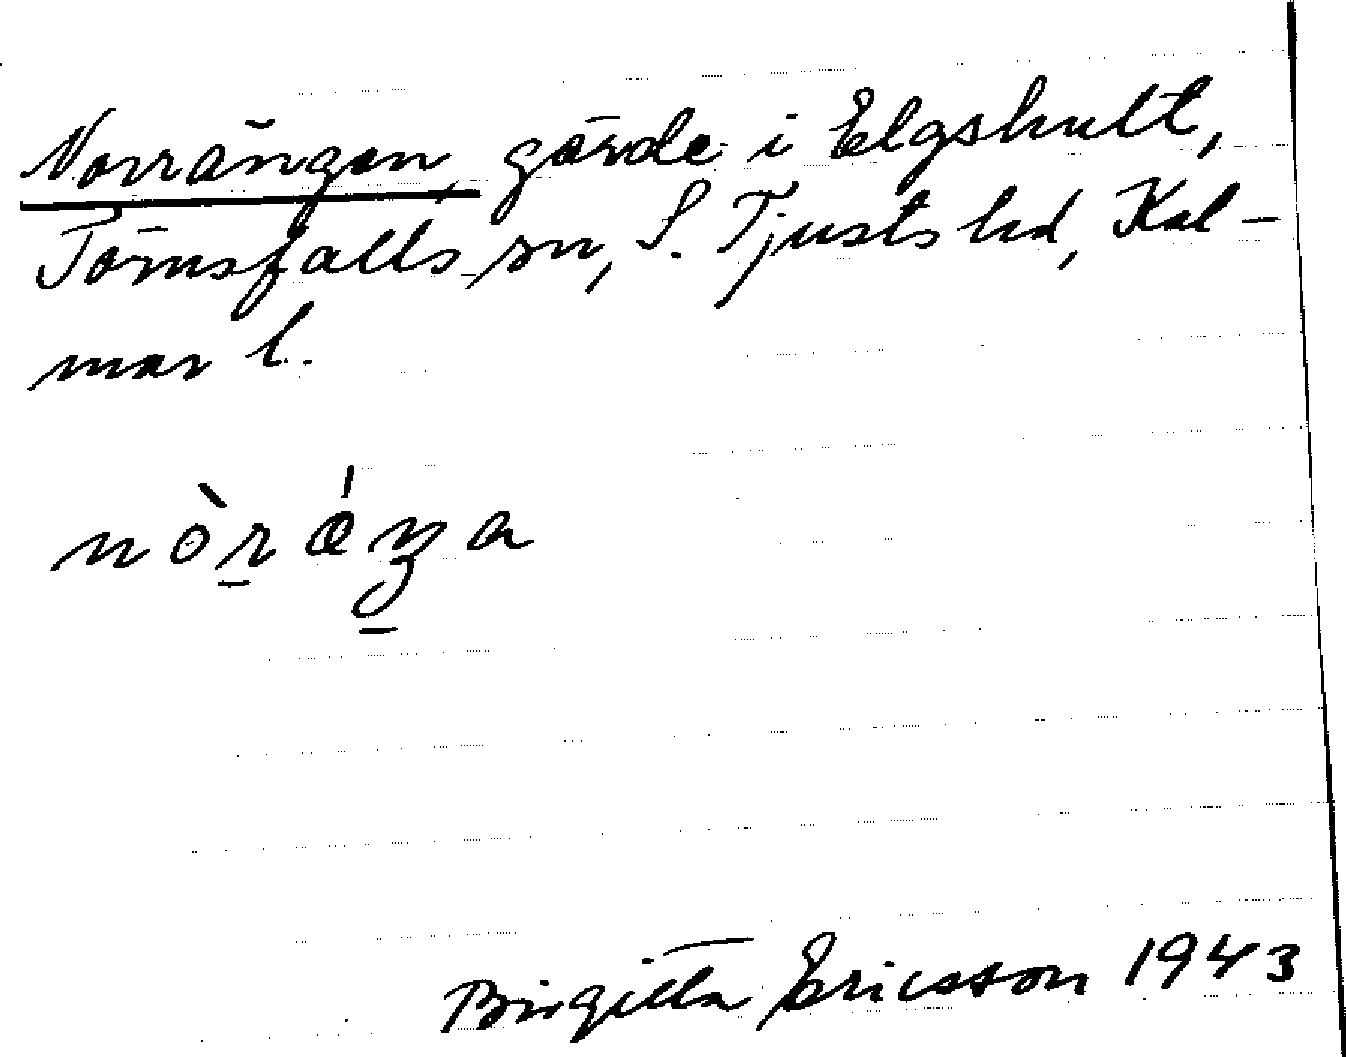 Norrängen, gärde i Elgshult,
Törnsfalls sn, S. Tjusts hd, Kal-
mar l.
Birgitta Ericsson 1943